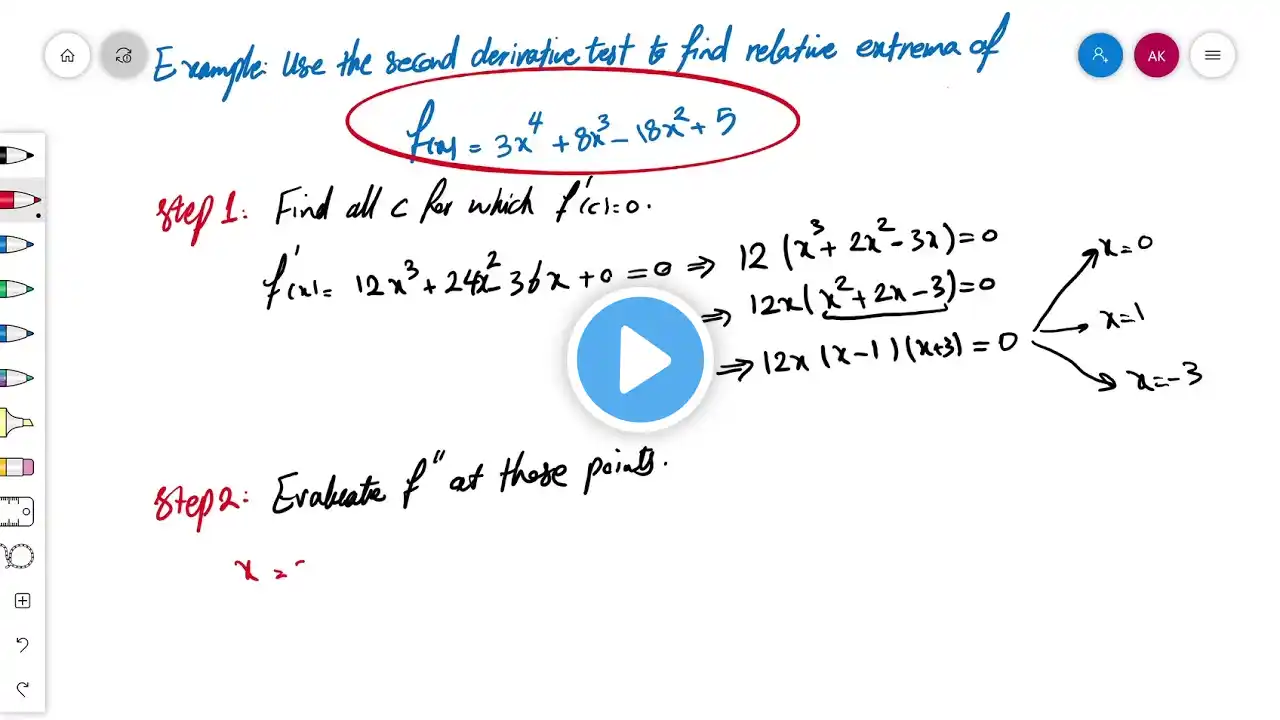 Example: Use the second derivative test to find relative extrema of
f(x) = 3x⁴ + 8x³ - 18x² + 5
AK
Step 1: Find all c for which f'(c)=0.
f'(x) = 12x³ + 24x² - 36x + 0 = 0 ⇒ 12(x³ + 2x² - 3x) = 0
⇒ 12x(x² + 2x - 3) = 0
⇒ 12x(x-1)(x+3) = 0
x=0
x=1
x=-3
Step 2: Evaluate f" at those points.
x =